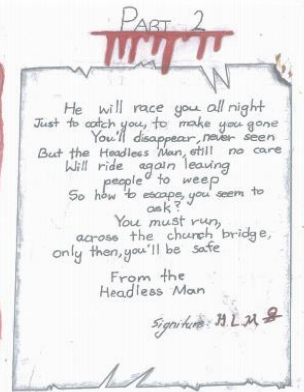 PART 2
He will race you all night
Just to catch you, to make you gone
You'll disappear, never seen
But the Headless Man, still no care
Will ride again leaving
people to weep
So how to escape, you seem to
ask?
You must run,
across the church bridge,
only then, you'll be safe
From the
Headless Man
Signiture: H.L.M